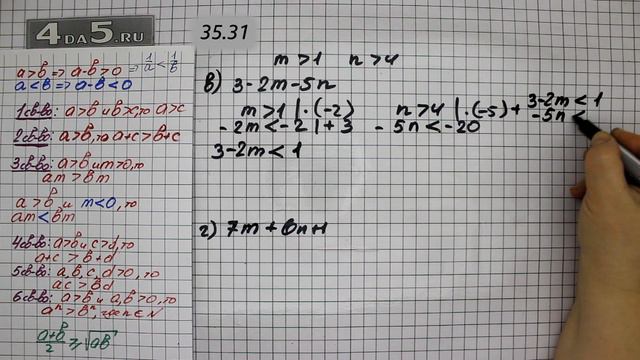 4 DA 5.RU
35.31
a>b => a-b>0 => 1/a < 1/b
a<b => a-b<0
1 св-во: a>b и b>c, то a>c
2 св-во: a>b, то a+c>b+c
3 св-во: a>b и m>0, то
am>bm
a>b и m<0, то
am<bm
4 св-во: a>b и c>d, то
a+c>b+d
5 св-во: a,b,c,d>0, то
ac>bd
6 св-во: a>b и a,b>0, то
aⁿ>bⁿ, где n∈N
(a+b)/2 ≥ √ab
m>1 n>4
в) 3-2m-5n
m>1 |·(-2) n>4 |·(-5) + 3-2m<1
-2m<-2 |+3 -5n<-20 -5n<
3-2m<1
г) 7m+6n+1